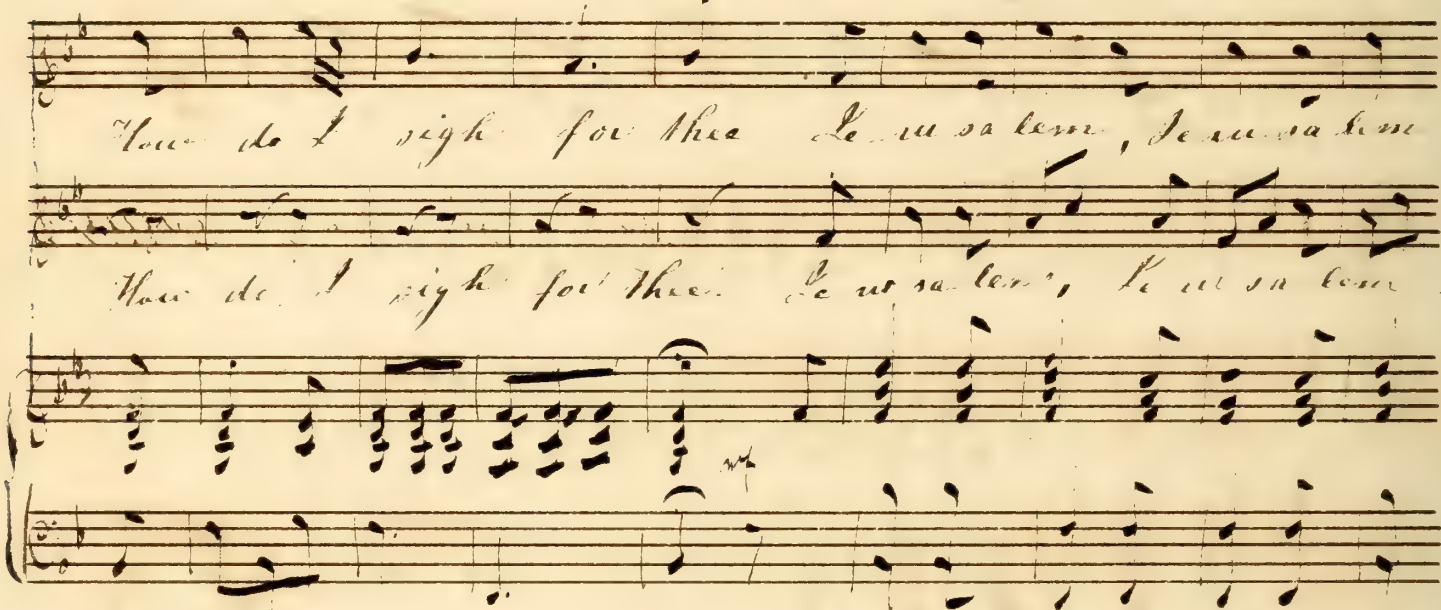 How do I sigh for thee Je ru sa lem, Je ru sa lem
How do I sigh for thee Je ru sa lem, Je ru sa lem
mf